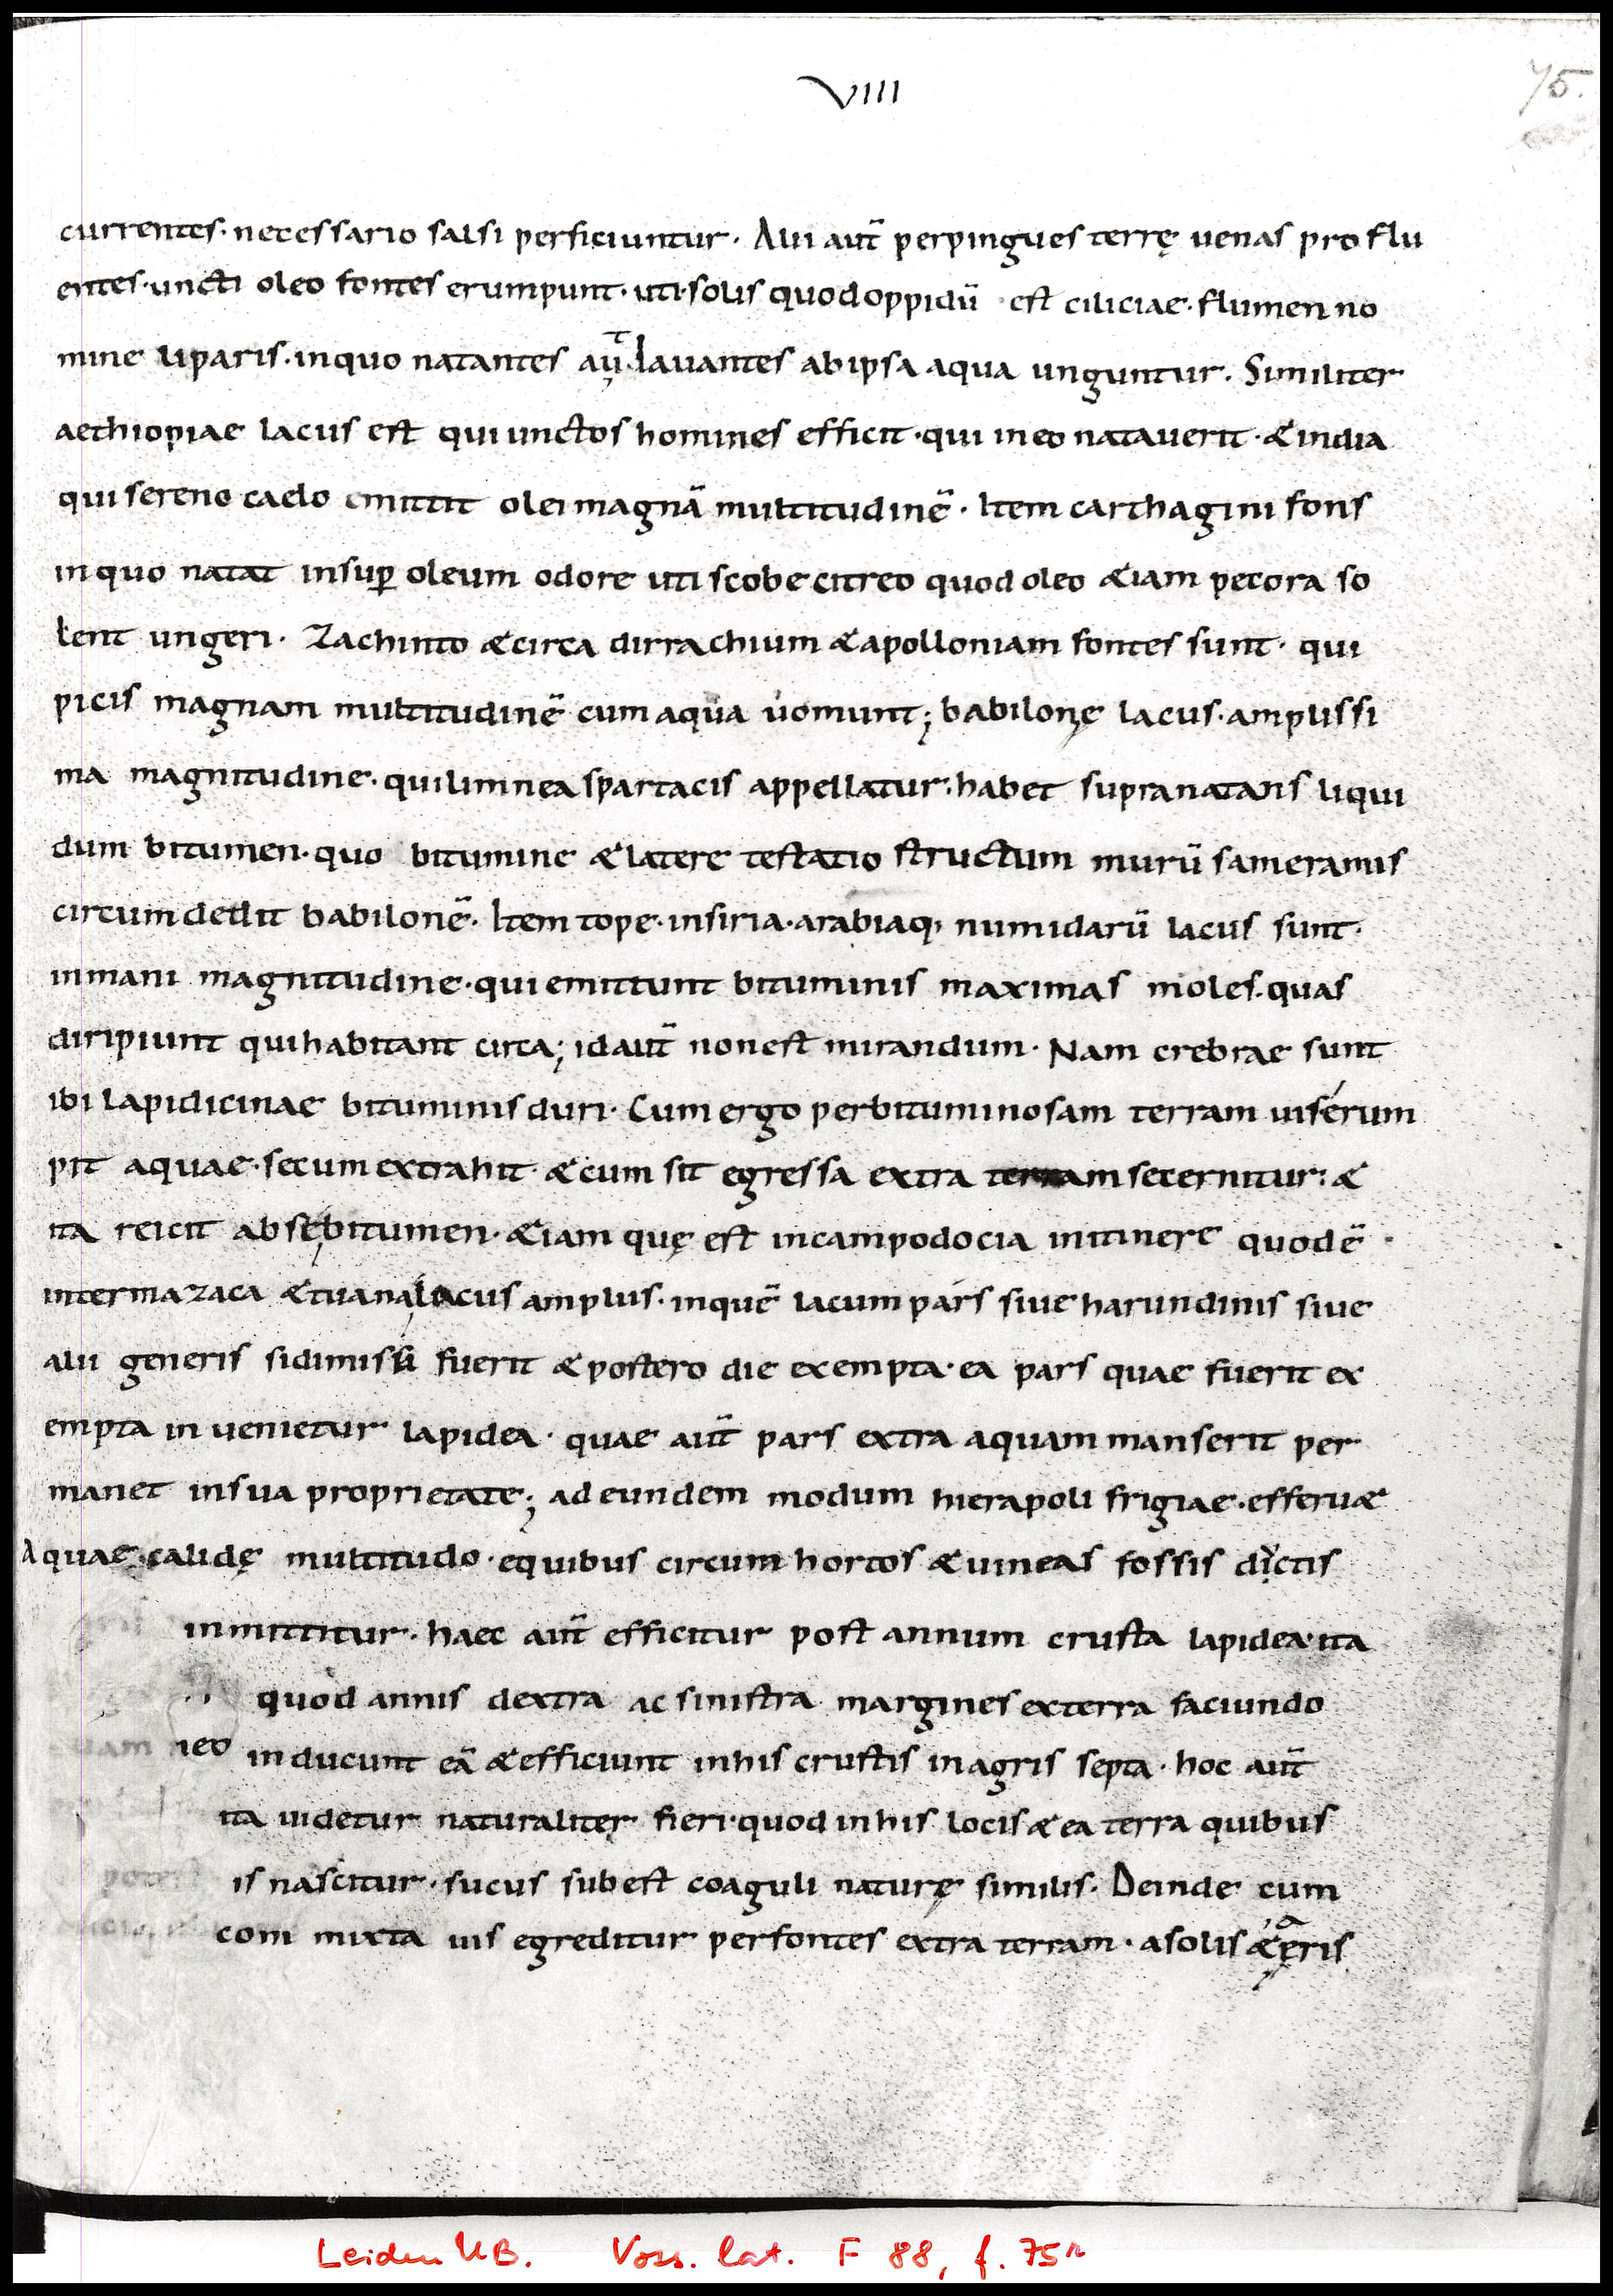 VIII
75.
currentes· necessario salsi perficiuntur· Alii aut̄ perpingues terrę uenas proflu
entes·uncti oleo fontes erumpunt·uti·solis quodoppidū est ciliciae·flumen no
mine liparis·inquo natantes aụt̄·lauantes abipsa aqua unguntur· Similiter
aethiopiae lacus est qui unctos homines efficit·qui ineo natauerit·&india
qui sereno caelo emittit olei magnā multitudinē· Item carthagini fons
inquo natat insuꝑ oleum odore uti scobe citreo quod oleo &iam pecora so
lent ungeri· Zachinto &circa dirrachium &apolloniam fontes sunt· qui
picis magnam multitudinē cum aqua uomunt; babilonę lacus·amplissi
ma magnitudine·quilimnea spartacis appellatur·habet supranatans liqui
dum bitumen·quo bitumine &latere testatio structum murū sameramis
circumdedit babilonē· Item tope·insiria·arabiaq; numidarū lacus sunt·
inmani magnitudine·qui emittunt bituminis maximas moles·quas
diripiunt quihabitant circa; idaut̄ nonest mirandum· Nam crebrae sunt
ibi lapidicinae bituminis duri· Cum ergo perbituminosam terram uisérum
pit aquae·secum extrahit· &cum sit egressa extra terram secernitur: &
ita reicit absębitumen· &iam quę est incampodocia initinere quodē·
intermazaca &tuana lacus amplus·inquē lacum pars siue harundinis siue
alii generis sidimisū fuerit &postero die exempta·ea pars quae fuerit ex
empta inuenietur lapidea· quae aut̄ pars extra aquam manserit per
manet insua proprietate; ad eundem modum hierapoli frigiae·efferu&
Aquae·calidę multitudo·equibus circum hortos &uineas fossis dictis
inmittitur· haec aut̄ efficitur post annum crusta lapidea·ita
quod annis dextra ac sinistra margines exterra faciundo
inducunt eā &efficiunt inhis crustis inagris septa· hoc aut̄
ita uidetur naturaliter fieri·quod inhis locis &ea terra quibus
is nascitur·sucus subest coaguli naturę similis· Deinde cum
com mixta uis egreditur perfontes extra terram· asolis &aeris
Leiden UB. Voss. lat. F 88, f. 75r